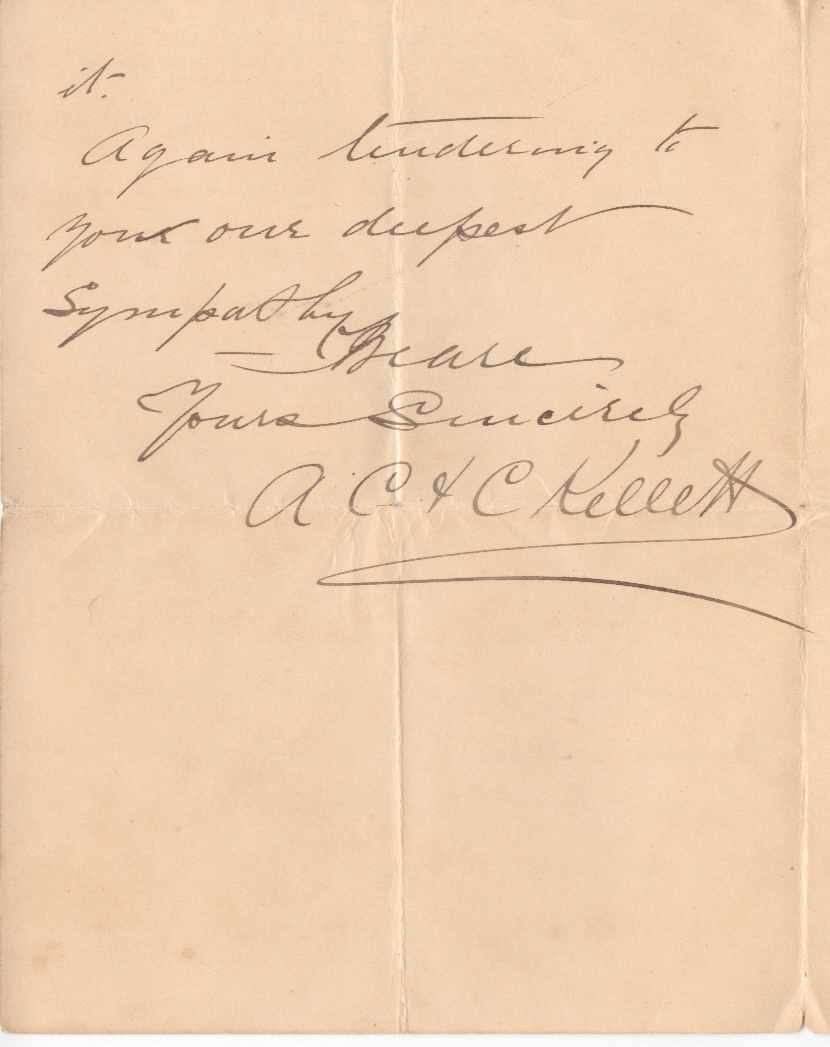 it.
Again tendering to
you our deepest
Sympathy
We are
Yours Sincerely
A C & C Kellett